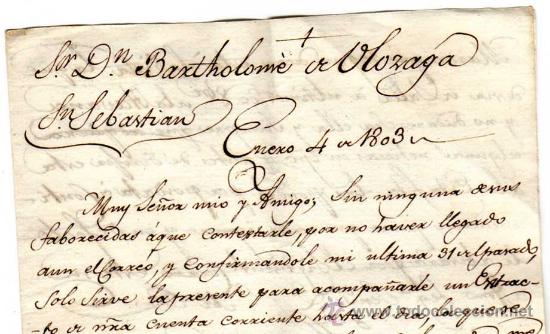 †
Sor. Dn. Bartholomè de Vlozaga
Sn. Sebastian
Enero 4 de 1803
Muy Señor mio y Amigo; Sin ninguna de sus
faborecidas áque Contestarle, por no haver llegado
aun el Correo, y Confirmandole mi ultima 31 del pasado,
Solo Sirve la presente para acompañarle un Extrac-
to de nra Cuenta Corriente hasta el
todocoleccion.net